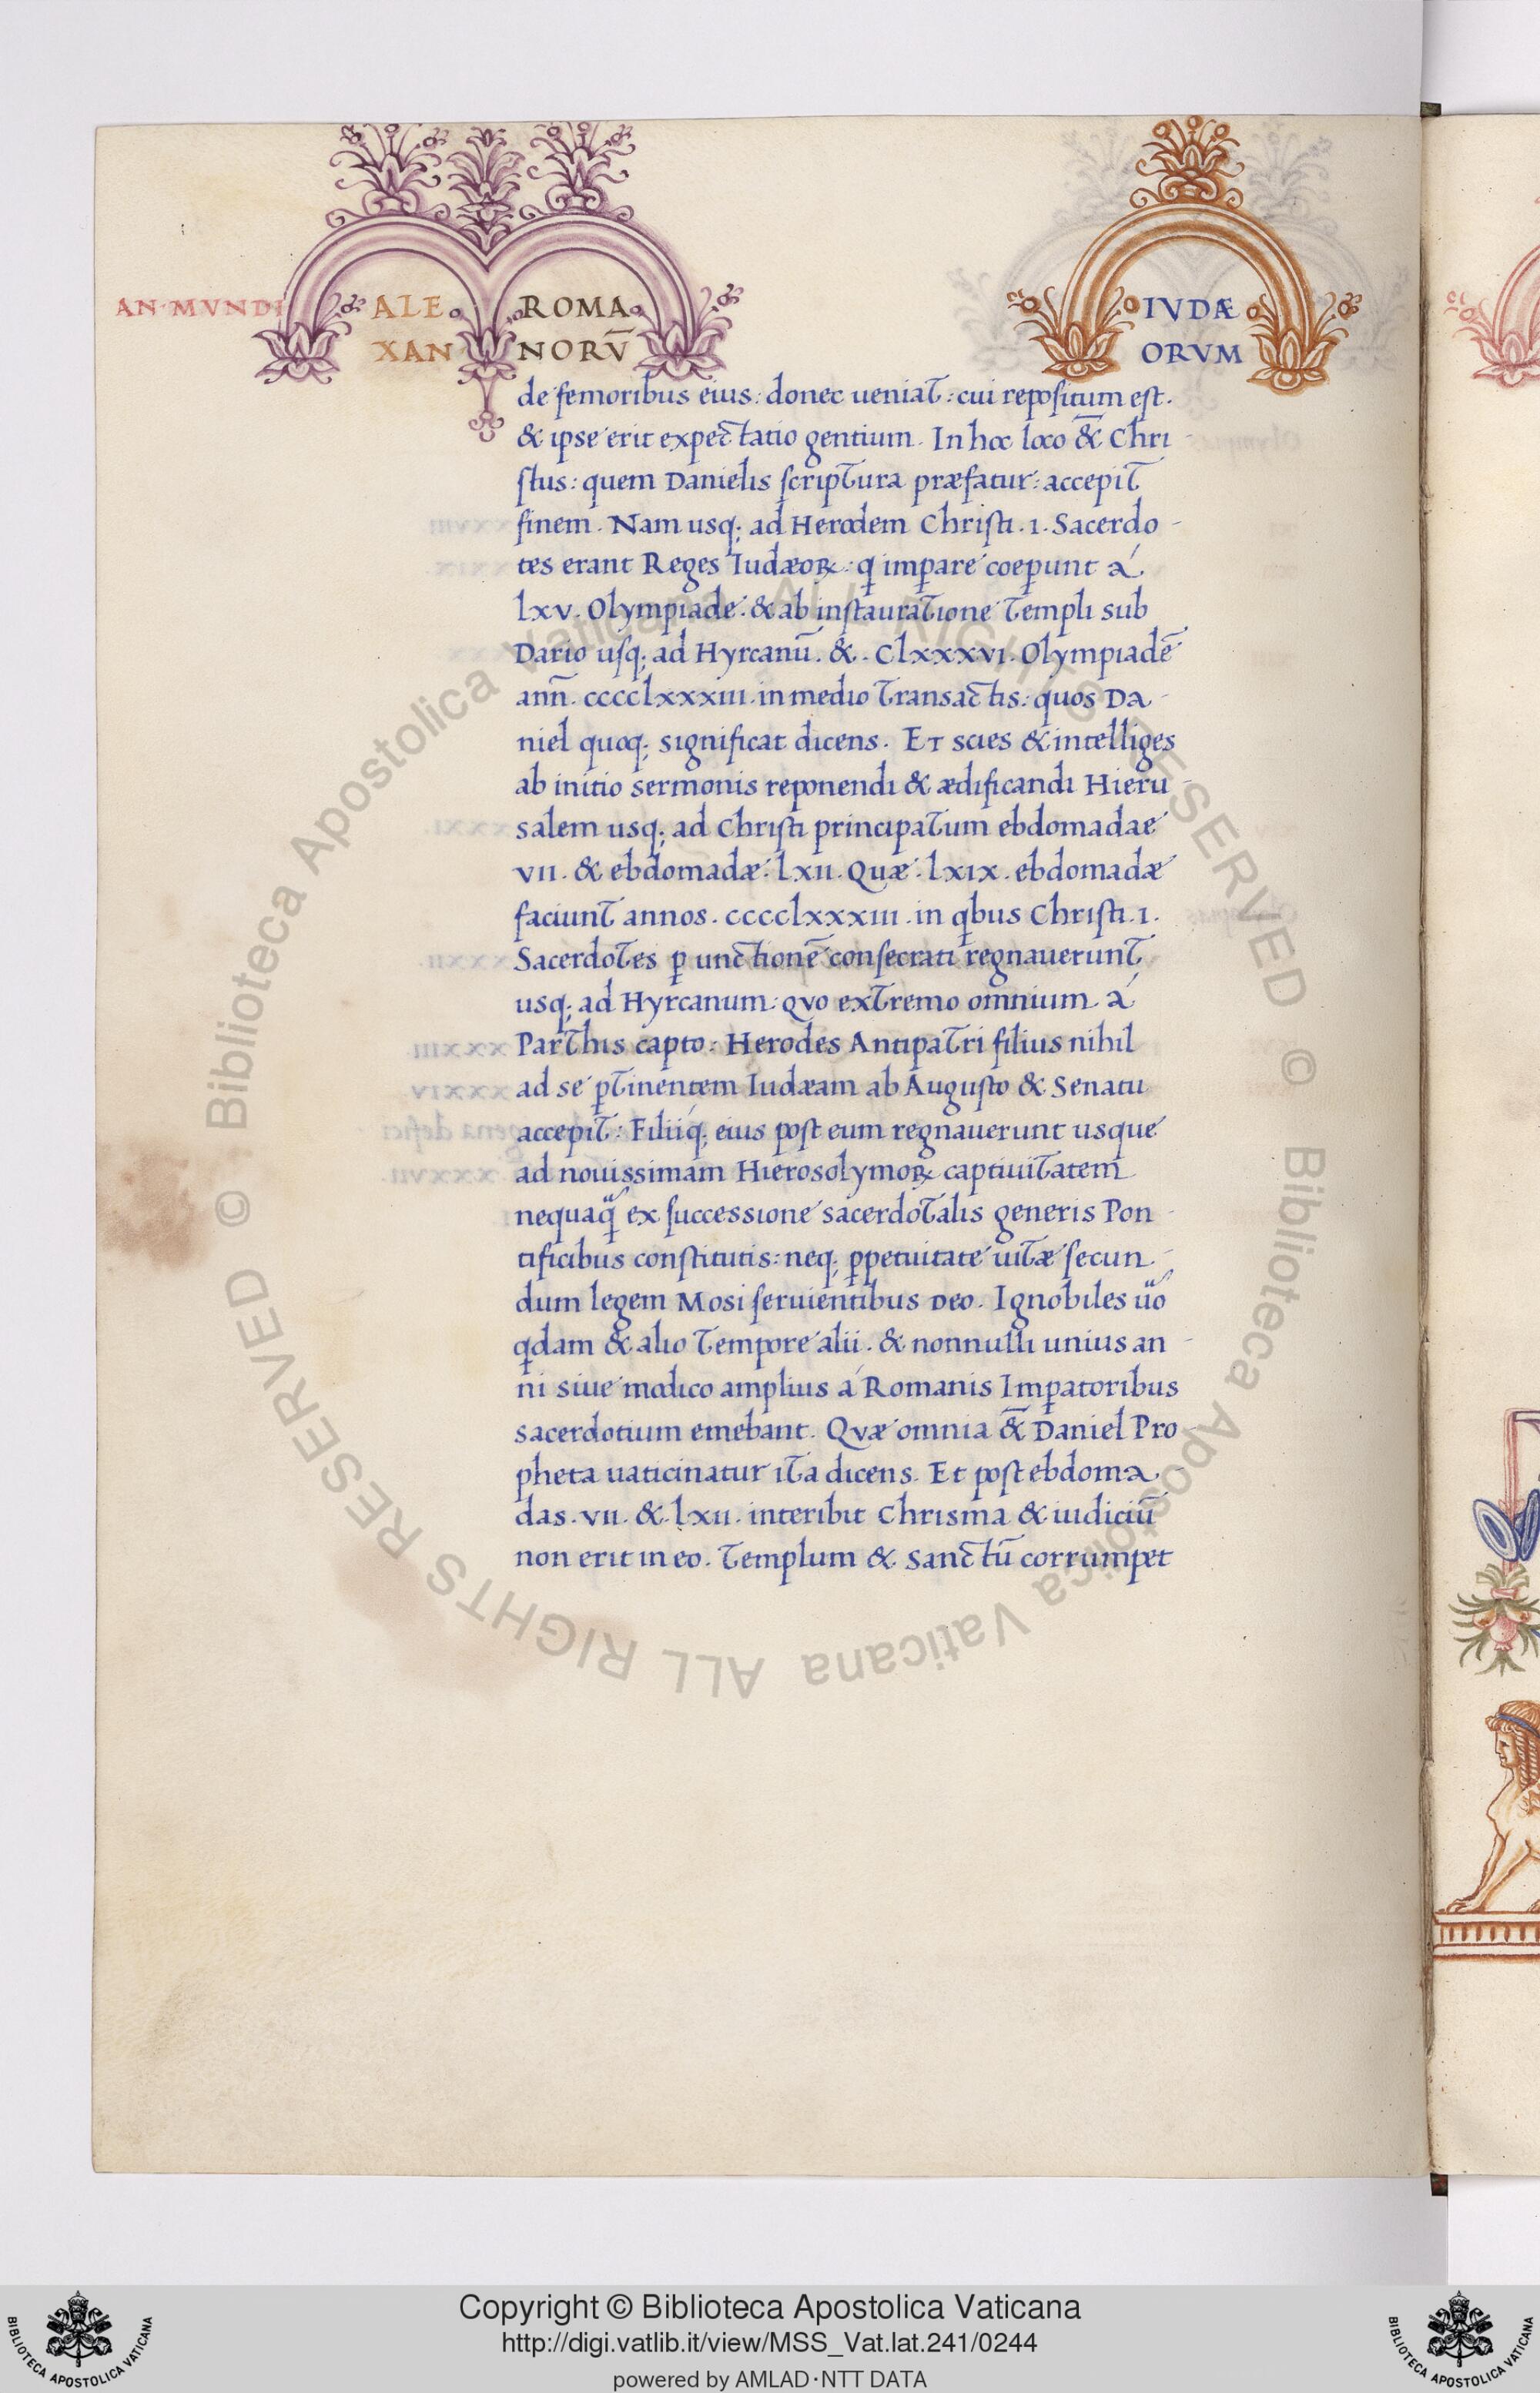 AN·MVNDI
ALE
XAN
ROMA
NORV̄
IVDÆ
ORVM
de femoribus eius: donec ueniat: cui repositum est.
& ipse erit expectatio gentium. In hoc loco &̄ Chri-
stus: quem Danielis scriptura præfatur: accepit
finem. Nam usq; ad Herodem Christi .1. Sacerdo-
tes erant Reges Iudæoꝝ: q̣ imꝑare coeꝑunt á
lxv. Olympiade: & ab instauratione Templi sub
Dario usq; ad Hyrcanū. &. Clxxxvi. Olympiadē
ann̄. cccclxxxiii. in medio transactis: quos Da-
niel quoq; significat dicens. Et scies & intelliges
ab initio sermonis reponendi & ædificandi Hieru-
salem usq; ad Christi principatum ebdomadae
vii. & ebdomadæ: lxii. Quæ: lxix. ebdomadæ
faciunt annos. cccclxxxiii. in qbus Christi .1.
Sacerdotes ꝑ unctionē consecrati regnauerunt
usq; ad Hyrcanum: Qvo extremo omnium á
Parthis capto: Herodes Antipatri filius nihil
ad se ꝑtinentem Iudæam ab Augusto & Senatu
accepit: Filiiq́; eius post eum regnauerunt usque
ad nouissimam Hierosolymoꝝ captiuitatem
nequaq̃ ex successione sacerdotalis generis Pon-
tificibus constitutis: neq; ꝑpetuitate uitæ secun-
dum legem Mosi seruientibus Deo. Ignobiles ũo
qdam & alio Tempore alii. & nonnulli unius an-
ni siue modico amplius á Romanis Imꝑatoribus
sacerdotium emebant. Qvæ omnia &̄ Daniel Pro
pheta uaticinatur ita dicens. Et post ebdoma-
das. vii. & lxii. interibit Chrisma & iudiciū
non erit in eo. Templum & Sanctū corrumpet
© Biblioteca Apostolica Vaticana ALL RIGHTS RESERVED © Biblioteca Apostolica Vaticana ALL RIGHTS RESERVED
Copyright © Biblioteca Apostolica Vaticana
http://digi.vatlib.it/view/MSS_Vat.lat.241/0244
powered by AMLAD·NTT DATA
BIBLIOTECA APOSTOLICA VATICANA
BIBLIOTECA APOSTOLICA VATICANA